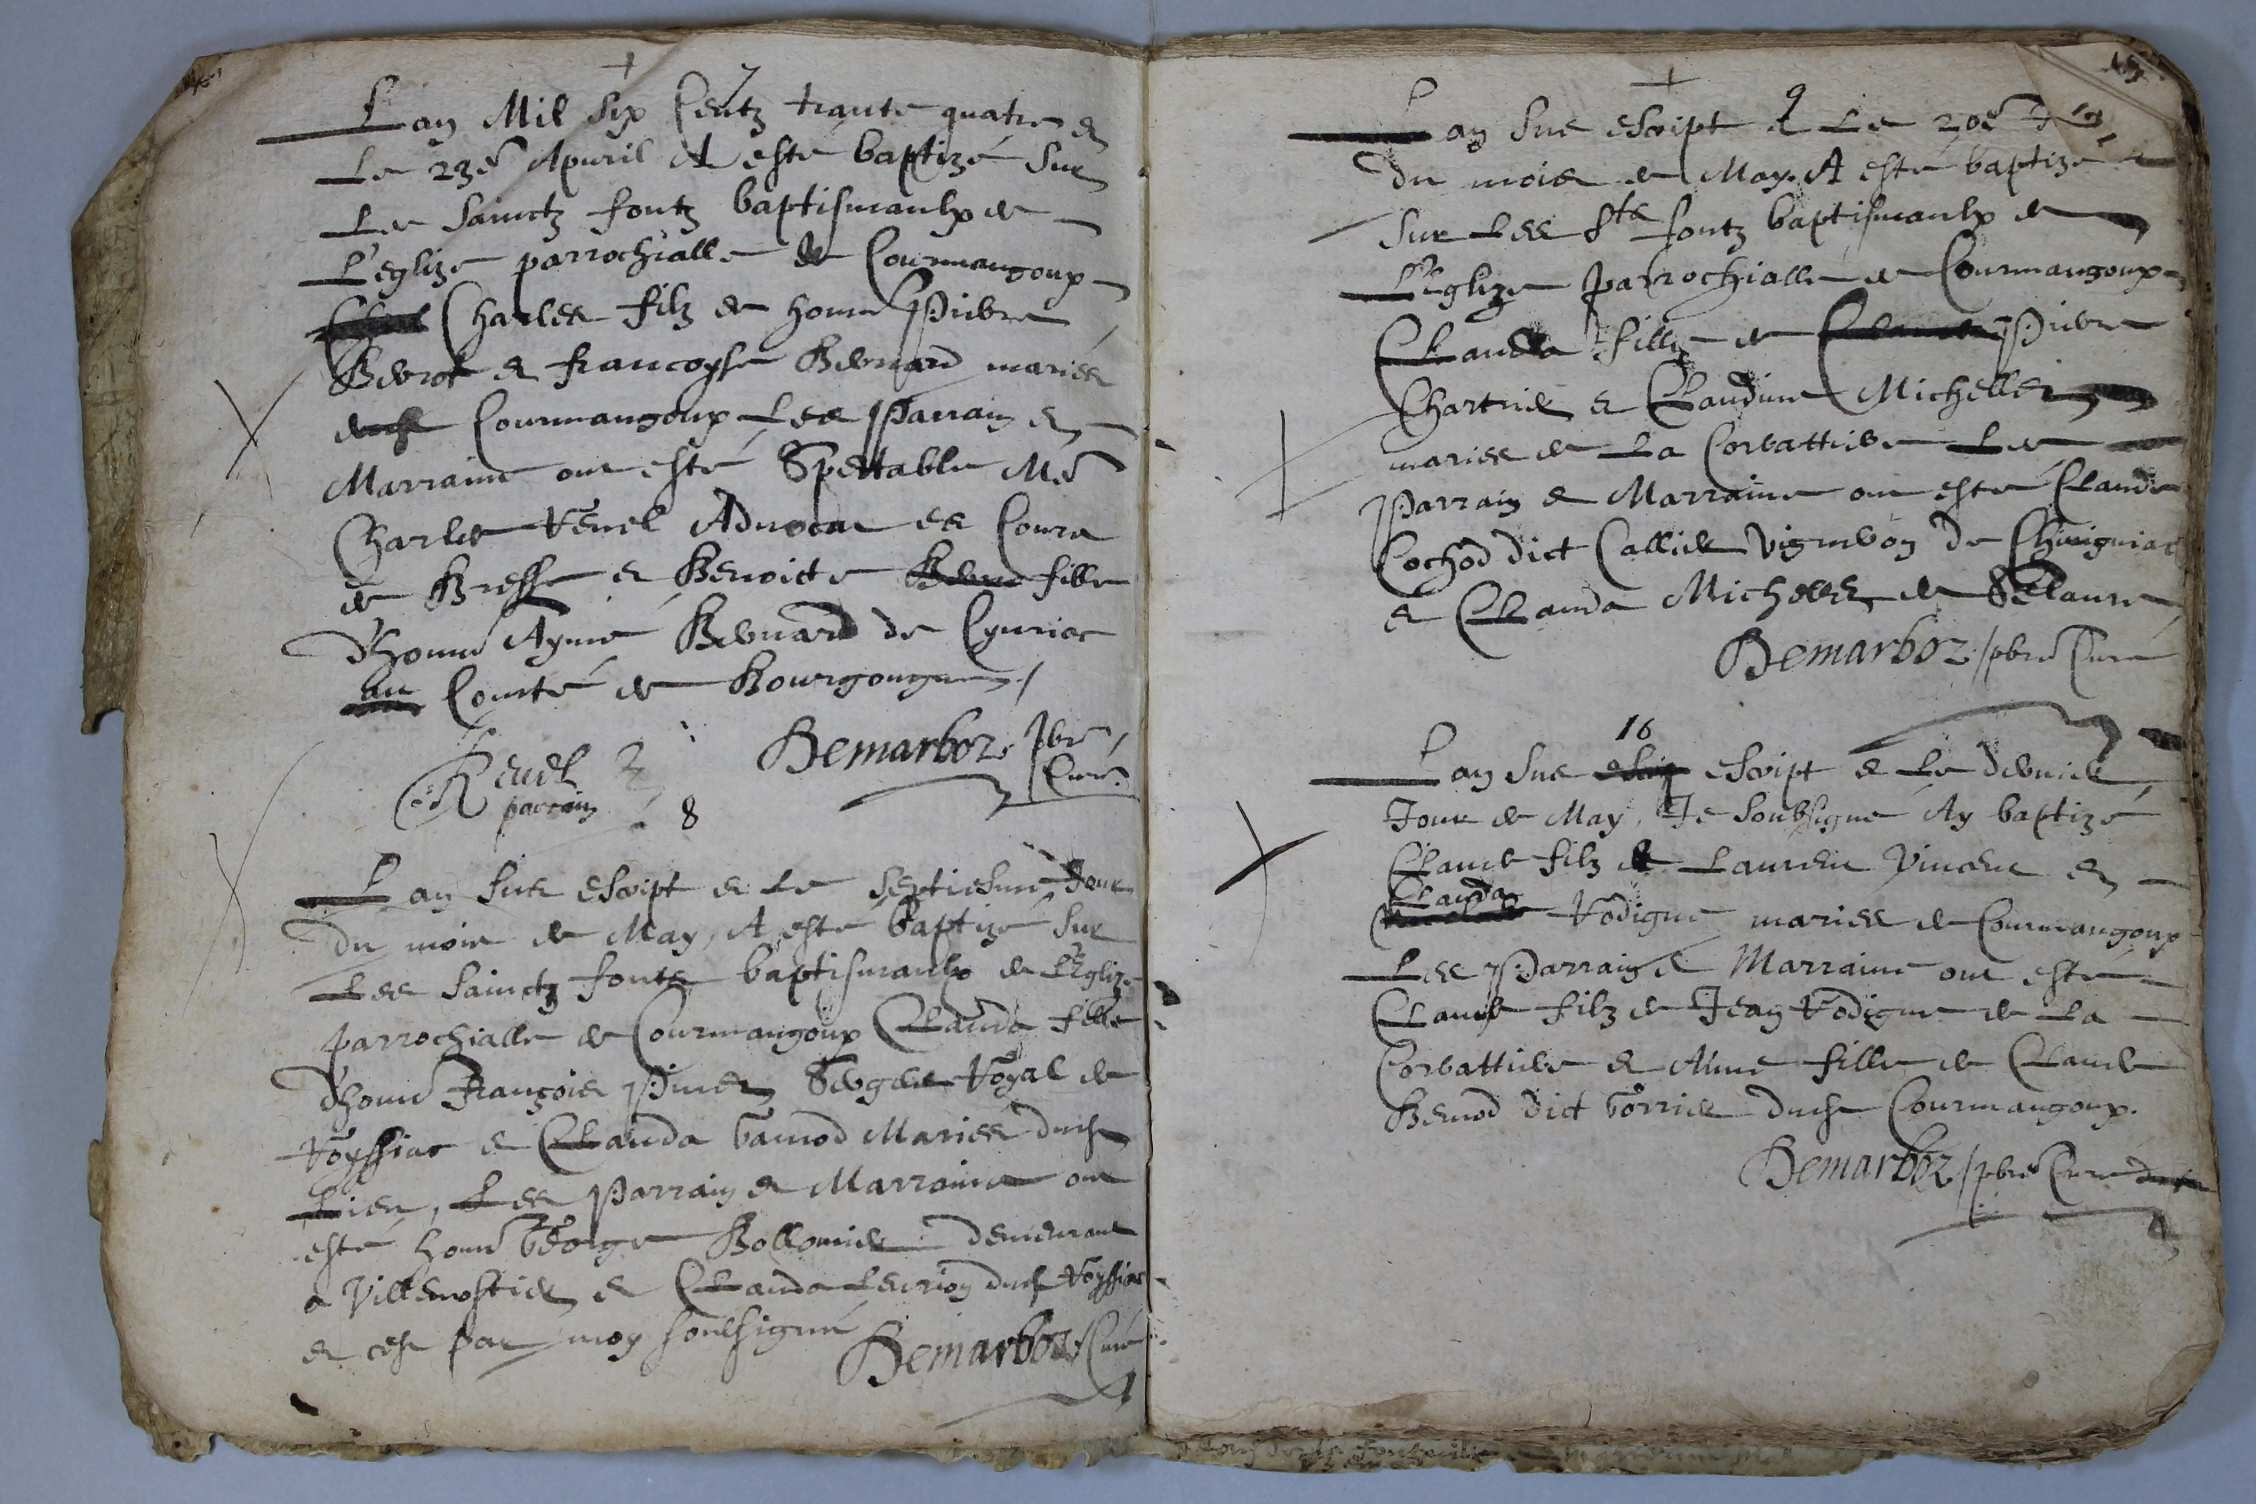 7
Lan Mil six Centz trante quatre &
Le 23e Apuril A esté baptizé sur
Les sainctz fontz baptismaulx de
L'eglize parrochialle de Courmangoux
Charles filz de home Pierre
Berrod & francoyse Bernard mariés
Courmangoux Les Parrain &
Marraine ont esté Spectable Me
Charles Reuel Aduocat es Cours
de Bresse & Benoicte fille
d'home Aymé Bernard de Cyuriac
au Conté de Bourgongne /
Demarboz pbre
Curé
Reuel
parrain
8
Lan sus escript & Le septiesme Jour
du mois de May, A esté baptizé sur
Les sainctz fontz baptismaulx de L'Eglize
parrochialle de Courmangoux Clauda fille
d'home François Sergent Royal de
Royssiac & Clauda mariés dudict
Lieu, Les Parrain & Marraine ont
esté home George demeurant
a Villemostier & Clauda dudict Royssiac
& cest par moy soulsigné
Demarboz Curé
9
Lan sus escript & Le 20e
du mois de May A esté baptizé
sur Les Stz fontz baptismaulx de
L'Eglize parrochialle de Courmangoux
Clauda fille de Pierre
& Claudine
mariés de La Corbattiere Les
Parrain & Marraine ont esté Claude
Cochod dict Callier vigneron de
& Clauda de
Demarboz pbre Curé
10
Lan sus escript & Le dernier
Jour de May, Je soubsigné Ay baptizé
Claude filz de Laurent Vincent &
Clauda Rodigue mariés de Courmangoux
Les Parrain & Marraine ont esté
Claude filz de Jean Rodigue de La
Corbattiere & Anne fille de Claude
Benod dict dudict Courmangoux.
Demarboz pbre Curé